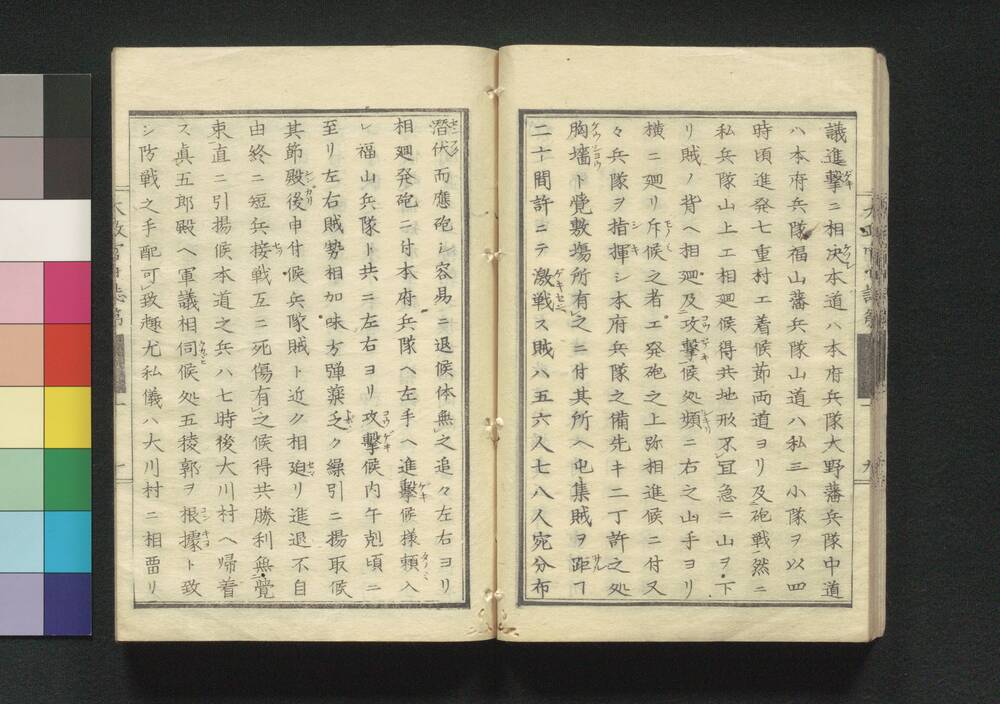 議進撃ニ相决本道ハ本府兵隊大野藩兵隊中道
ハ本府兵隊福山藩兵隊山道ハ私三小隊ヲ以四
時頃進発七重村エ着候節両道ヨリ及砲戦然ニ
私兵隊山上エ相廻候得共地形不宜急ニ山ヲ下
リ賊ノ背ヘ相廻及攻撃候処頻ニ右之山手ヨリ
横ニ廻リ斥候之者エ発砲之上弥相進候ニ付又
々兵隊ヲ指揮シ本府兵隊之備先キ二丁許之処
胸墻ト覚敷塲所有之ニ付其所ヘ屯集賊ヲ距ヿ
二十間許ニテ激戦ス賊ハ五六人七八人宛分布
潜伏而應砲シ容易ニ退候体無之追々左右ヨリ
相廻発砲ニ付本府兵隊ヘ左手ヘ進撃候様頼入
レ福山兵隊ト共ニ左右ヨリ攻撃候内午剋頃ニ
至リ左右賊勢相加味方弾薬乏ク繰引ニ揚取候
其節殿後申付候兵隊賊ト近ク相廹リ進退不自
由終ニ短兵接戦互ニ死傷有之候得共勝利無覚
束直ニ引揚候本道之兵ハ七時後大川村ヘ帰着
ス真五郎殿ヘ軍議相伺候処五稜郭ヲ根據ト致
シ防戦之手配可致趣尤私儀ハ大川村ニ相畱リ